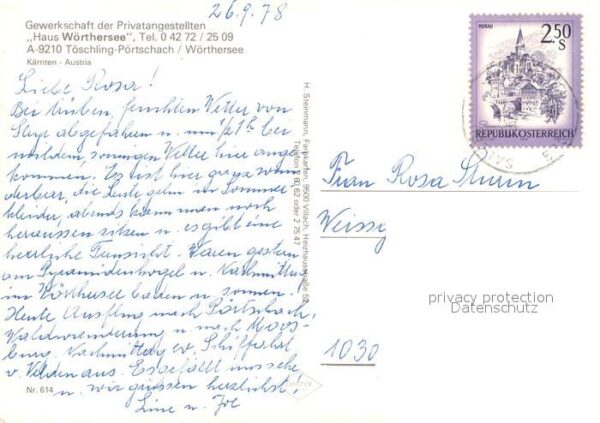 26.9.78
Gewerkschaft der Privatangestellten
„Haus Wörthersee", Tel. 0 42 72 / 25 09
A-9210 Töschling-Pörtschach / Wörthersee
Kärnten - Austria
Liebe Rosa!
Bei trüben, feuchten Wetter von
Steyr abgefahren u. um ½1h bei
mildem, sonnigen Wetter hier ange
kommen. Es ist hier ganz wun
derbar, die Leute gehn im Sommer
kleider, abends kann man noch
heraussen sitzen u. es gibt eine
herrliche Fernsicht. Waren gestern
am Pyramidenkogel u. Nachmittag
im Wörthersee baden u. sonnen!
Heute Ausflug nach Pörtschach,
Waldwanderung u. nach Moos-
burg. Nachmittag ev. Schiffahrt
v. Velden aus. Es gefällt uns sehr
u. wir grüssen herzlichst!
u. Joe
Nr. 614
H. Steinmann, Farbkarten, 9500 Villach, Heizhausstraße 52
Telefon 2 60 62 oder 2 75 47
MURAU
2.50
S
REPUBLIK ÖSTERREICH
Frau Rosa Sturm
1030
privacy protection
Datenschutz